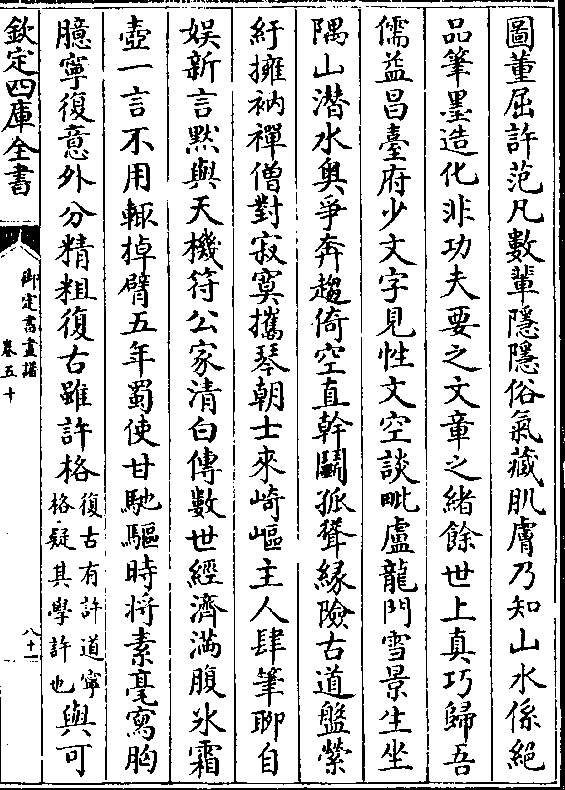 圖董屈許范凡數輩隱隱俗氣藏肌膚乃知山水係絕
品筆墨造化非功夫要之文章之緒餘世上真巧歸吾
儒益昌臺府少文字見性文空談毗盧龍門雪景生坐
隅山潜水奥爭奔趨倚空直幹鬭孤聳縁險古道盤縈
紆擁衲禪僧對寂寞攜琴朝士來崎嶇主人肆筆聊自
娱新言黙與天機符公家清白傳數世經濟滿腹氷霜
壺一言不用輙掉臂五年蜀使甘馳驅時将素毫寫胸
臆寧復意外分精粗復古雖許格復古有許道寧格疑其學許也與可
欽定四庫全書
御定書畫譜
卷五十
八十一